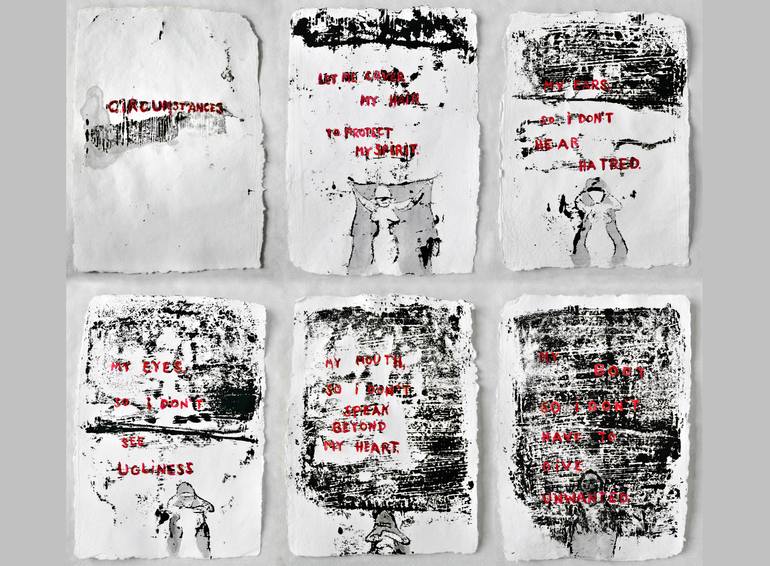 CIRCUMSTANCES
LET ME COVER
MY HAIR
TO PROTECT
MY SPIRIT.
MY EARS
SO I DON'T
HEAR
HATRED.
MY EYES,
SO I DON'T
SEE
UGLINESS
MY MOUTH,
SO I DON'T
SPEAK
BEYOND
MY HEART.
MY
BODY
SO I DON'T
HAVE TO
GIVE
UNWANTED.